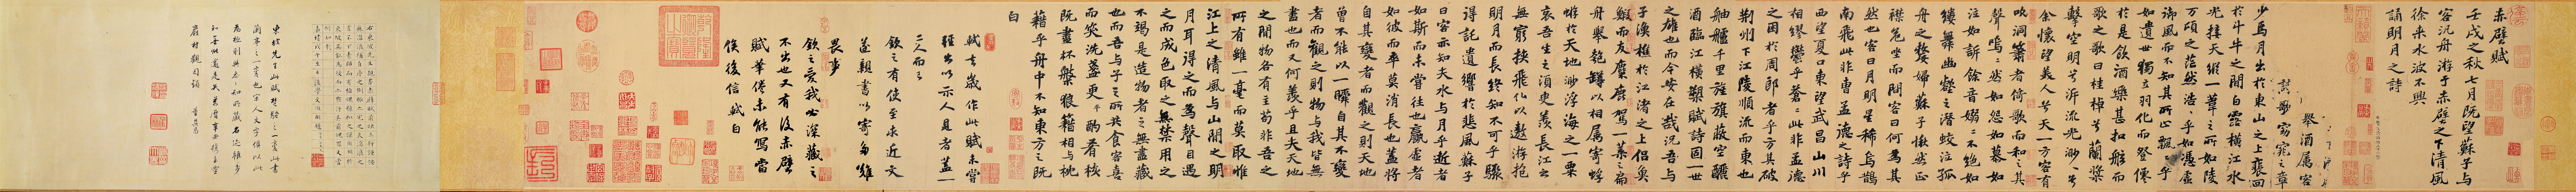 赤壁賦
壬戌之秋七月既望蘇子與
客汎舟游于赤壁之下清風
徐來水波不興
誦明月之詩
舉酒屬客
歌窈窕之章
少焉月出於東山之上裴回
於斗牛之間白露橫江水
光接天縱一葦之所如陵
萬頃之茫然浩浩乎如馮虛
御風而不知其所止飄飄乎
如遺世獨立羽化而登僊
於是飲酒樂甚扣舷而
歌之歌曰桂棹兮蘭槳
擊空明兮泝流光渺渺兮
余懷望美人兮天一方客有
吹洞簫者倚歌而和之其
聲嗚嗚然如怨如慕如
泣如訴餘音嫋嫋不絕如
縷舞幽壑之潛蛟泣孤
舟之嫠婦蘇子愀然正
襟危坐而問客曰何為其
然也客曰月明星稀烏鵲
南飛此非曹孟德之詩乎
西望夏口東望武昌山川
相繆鬱乎蒼蒼此非孟德
之困於周郎者乎方其破
荊州下江陵順流而東也
舳艫千里旌旗蔽空釃
酒臨江橫槊賦詩固一世
之雄也而今安在哉況吾與
子漁樵於江渚之上侶魚
鰕而友麋鹿駕一葉之扁
舟舉匏樽以相屬寄蜉
蝣於天地渺浮海之一粟
哀吾生之須臾羨長江之
無窮挾飛仙以遨游抱
明月而長終知不可乎驟
得託遺響於悲風蘇子
曰客亦知夫水與月乎逝者
如斯而未嘗往也贏虛者
如彼而卒莫消長也蓋將
自其變者而觀之則天地
曾不能以一瞬自其不變
者而觀之則物與我皆無
盡也而又何羨乎且夫天地
之間物各有主苟非吾之
所有雖一毫而莫取惟
江上之清風與山間之明
月耳得之而為聲目遇
之而成色取之無禁用之
不竭是造物者之無盡藏
也而吾與子之所共食客喜
而笑洗盞更酌肴核
既盡杯盤狼籍相與枕
藉乎舟中不知東方之既
白
軾去歲作此賦未嘗
輕出以示人見者蓋一
二人而已
欽之有使至求近文
遂親書以寄多難
畏事
欽之愛我必深藏之
不出也又有後赤壁
賦筆倦未能寫當
俟後信軾白
東坡先生此賦楚騷之一變此書
蘭亭之一變也宋人文字俱以此
為極則
董其昌